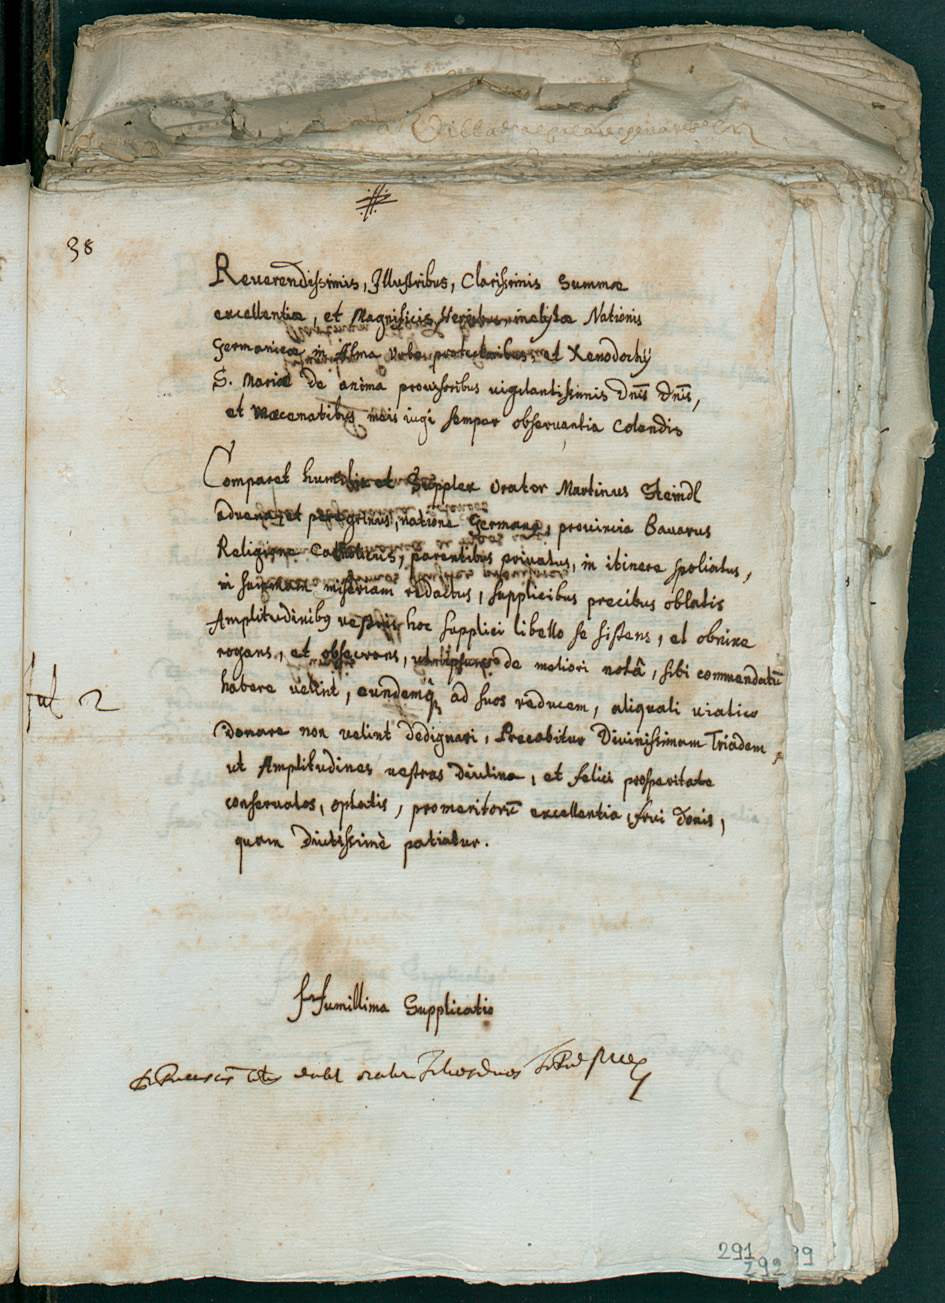 38
Reverendissimis, Illustribus, Clarissimis summæ
excellentiæ, et Magnificis Heroibus inclytæ Nationis
Germanicæ in Alma Urbe protectoribus, et Xenodochij
S. Mariæ de anima provisoribus vigilantissimis Dnis Dnis,
et Mæcenatibus meis iugi semper observantia Colendis
Comparet humilis et Supplex Orator Martinus Steindl
advena, et peregrinus, natione Germanus, provincia Bavarus
Religione Catholicus, parentibus privatus, in itinere spoliatus,
in summam miseriam redactus, supplicibus precibus oblatis
Amplitudinibus vestris hoc supplici libello se sistens, et obnixe
rogans, et obsecrans, ut ipsum de meliori notâ, sibi commendatũ
habere velint, eundemq́ ad suos reducem, aliquali viatico
Donare non velint dedignari, Precabitur Divinissimam Triadem,
ut Amplitudines vestras diutina, et felici prosperitate
conservatas, optatis, promeritorũ excellentia, frui donis,
quam diutissimè patiatur.
2
Humillima Supplicatio
291
292
99